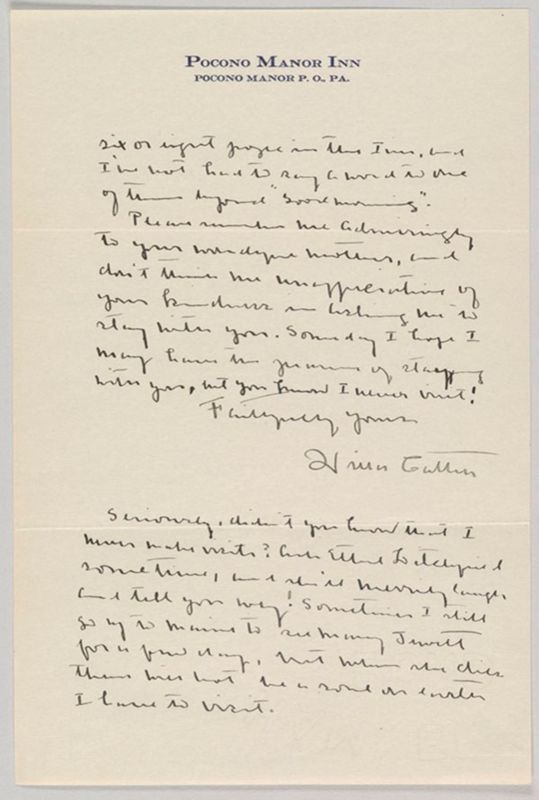 POCONO MANOR INN
POCONO MANOR P. O., PA.
six or eight people in this Inn, and
I've not had to say a word to one
of them beyond "Good morning".
Please remember me admiringly
to your mother, and
don't think me unappreciative of
your kindness in asking me to
stay with you. Someday I hope I
may have the pleasure of stopping
with you, but you know I never visit!
Faithfully yours
Willa Cather
Seriously, didn't you know that I
never make visits? Ask Ethel
sometime, and she'll merrily laugh
and tell you why! Sometimes I still
go up to Maine to see Mary Jewett
for a few days, but when she dies
there will not be a soul on earth
I have to visit.